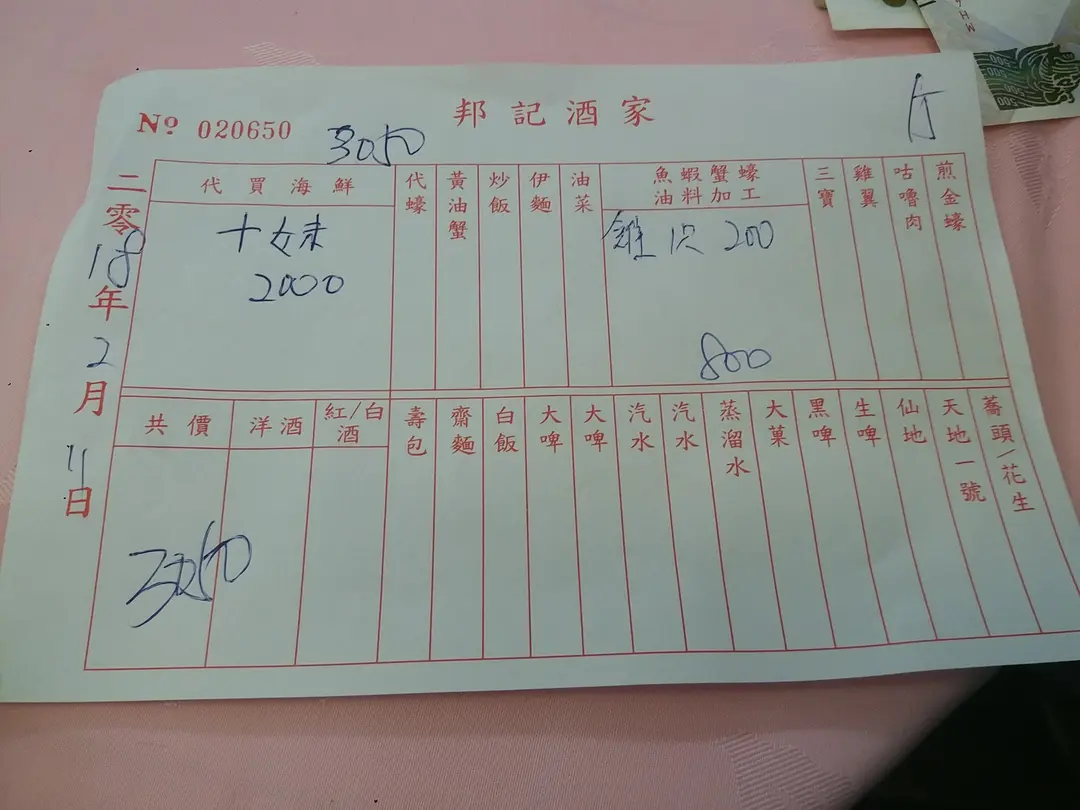 邦記酒家
Nº 020650
3050
二零18年2月11日
代買海鮮
十女未
2000
代蠔
黃油蟹
炒飯
伊麵
油菜
魚蝦蟹蠔
油料加工
雞 1只 200
800
三寶
雞翼
咕嚕肉
煎金蠔
共價
3050
洋酒
紅/白
酒
壽包
齋麵
白飯
大啤
大啤
汽水
汽水
蒸溜水
大菓
黑啤
生啤
仙地
天地一號
蕎頭/花生